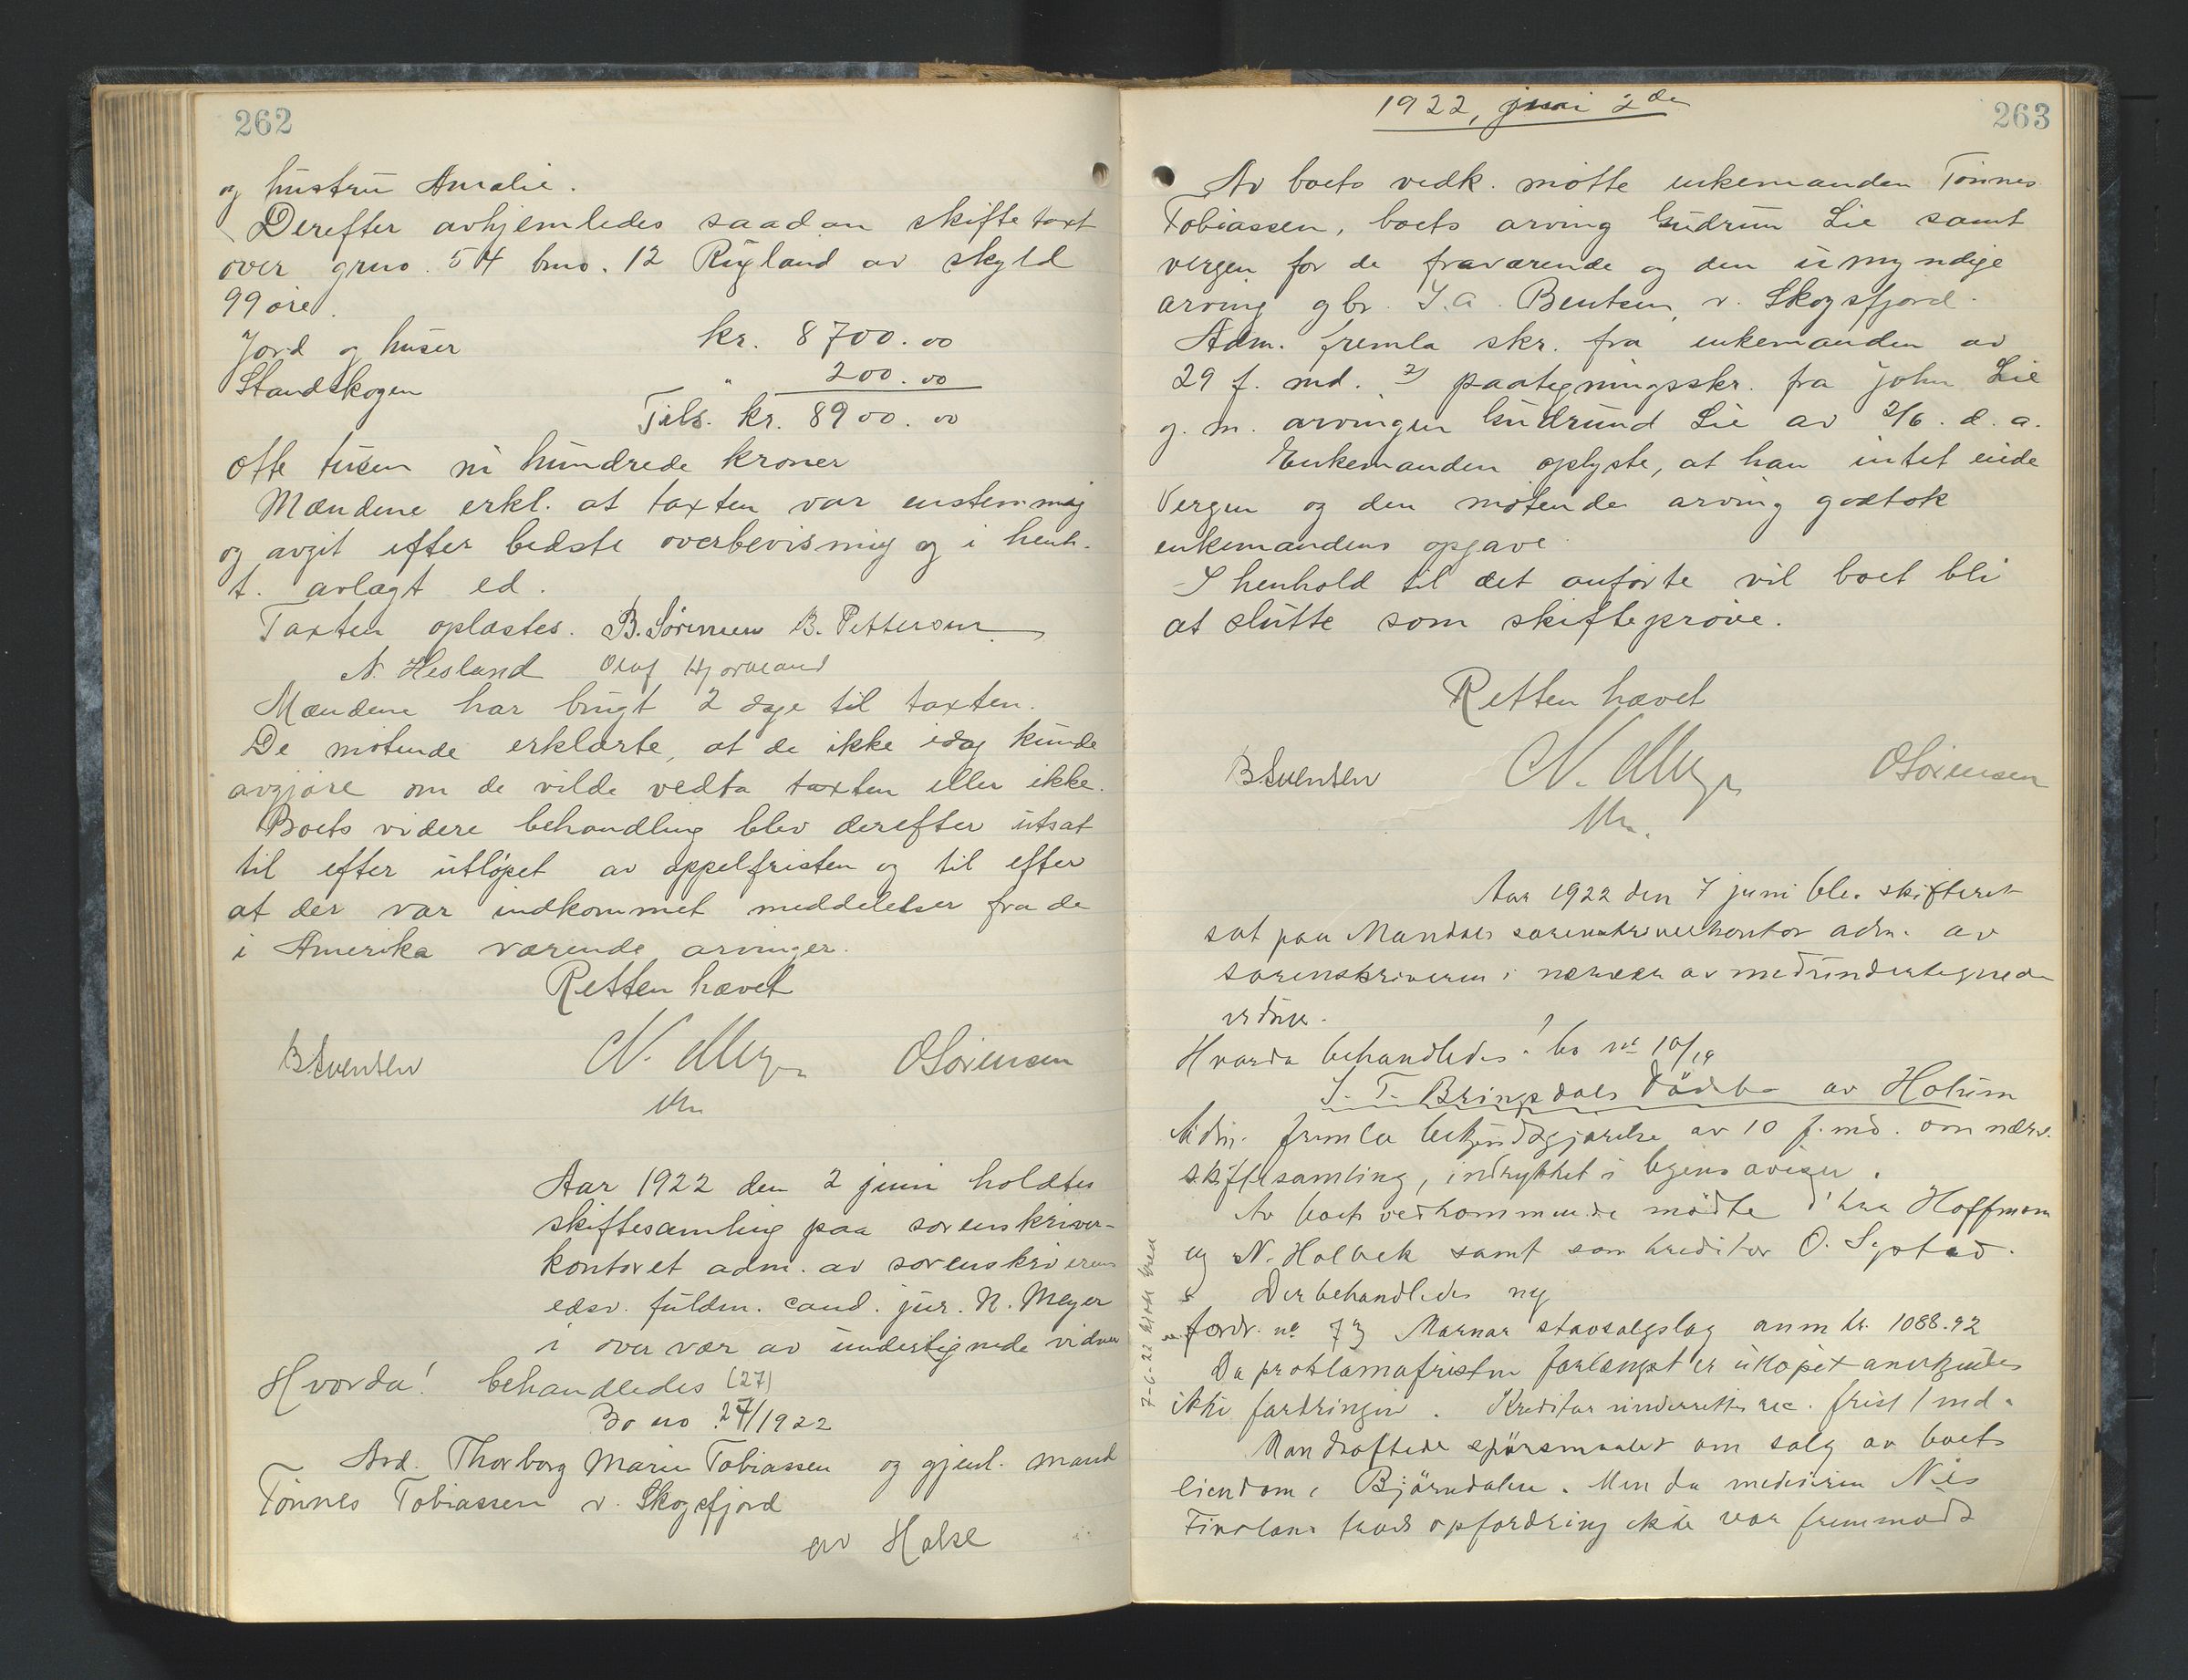 262
og hustru Amalie.
Derefter avhjemledes saadan skiftetaxt
over grno. 54 bno. 12 Rugland av skyld
99 øre.
Jord og huser kr. 8700.00
Standskogen " 200.00
Tils. kr. 8900.00
Otte tusen ni hundrede kroner
Mændene erkl. at taxten var enstemmig
og avgit efter bedste overbevisning og i henh.
t. avlagt ed.
Taxten oplæstes. B. Sørensen B. Petterson
N. Hesland Olaf
Mændene har brugt 2 dage til taxten.
De møtende erklærte, at de ikke idag kunde
avgjøre om de vilde vedta taxten eller ikke.
Boets videre behandling blev derefter utsat
til efter utløpet av appelfristen og til efter
at der var indkommet meddelelser fra de
i Amerika værende arvinger.
Retten hævet
B Svensen N. Meyer O Sørensen
Aar 1922 den 2 juni holdtes
skiftesamling paa sorenskriver-
kontoret adm. av sorenskriverens
edsv. fuldm. cand. jur. N. Meyer
i overvær av undertegnede vidner
Hvorda! behandledes (27)
Bo no 27/1922
Avd. Thorborg Marie Tobiassen og gjenl. mand
Tønnes Tobiassen v. Skogsfjord
av Halse
1922, juni 2de
263
Av boets vedk. møtte enkemanden Tønnes
Tobiassen, boets arving Gudrun Lie samt
vergen for de fraværende og den umyndige
arving gbr. T. A. Bentsen, v. Skogsfjord.
Adm. fremla skr. fra enkemanden av
29 f. md. 2) paategningsskr. fra John Lie
g. m. arvingen Gudrund Lie av 2/6. d. a.
Enkemanden oplyste, at han intet eiede
Vergen og den møtende arving godtok
enkemandens opgave.
I henhold til det anførte vil boet bli
at slutte som skifteprøve.
Retten hævet
B Svensen N. Meyer O Sørensen
Aar 1922 den 7 juni blev skifteret
sat paa Mandals sorenskriverkontor adm. av
sorenskriveren i nærvær av medundertegnede
vidner.
Hvorda behandledes! bo no 10/19
S. T. Bringsdals Dødsbo av Holum
Adm. fremla bekjendtgjørelse av 10 f. md. om nærv.
skiftesamling, indrykket i byens aviser.
Av boets vedkommende mødte d'hrr Hoffmann
og N. Holbek samt som kreditor O. Systad.
Der behandledes ny
fordr. no 73 Marnar stavsalgslag anm kr. 1088.92
Da proklamafristen forlængst er utløpet anerkjendes
ikke fordringen. Kreditor underrettes rec. frist 1 md.
Man drøftede spørsmaalet om salg av boets
eiendom i Bjørndalen. Men da medeieren Nils
Finsland trods opfordring ikke var fremmødt
7-6-22